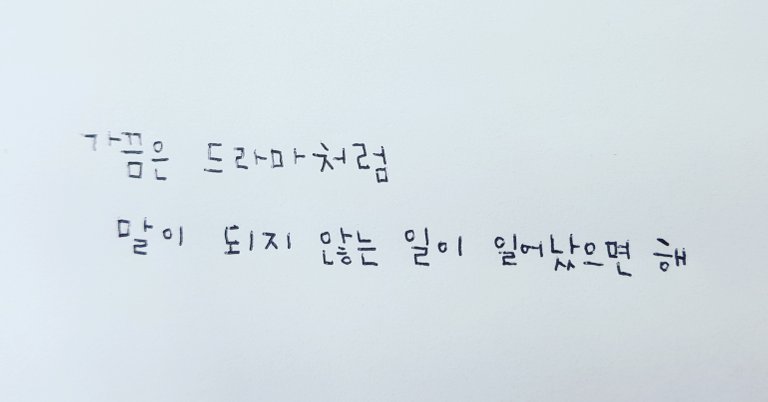 가끔은 드라마처럼
말이 되지 않는 일이 일어났으면 해